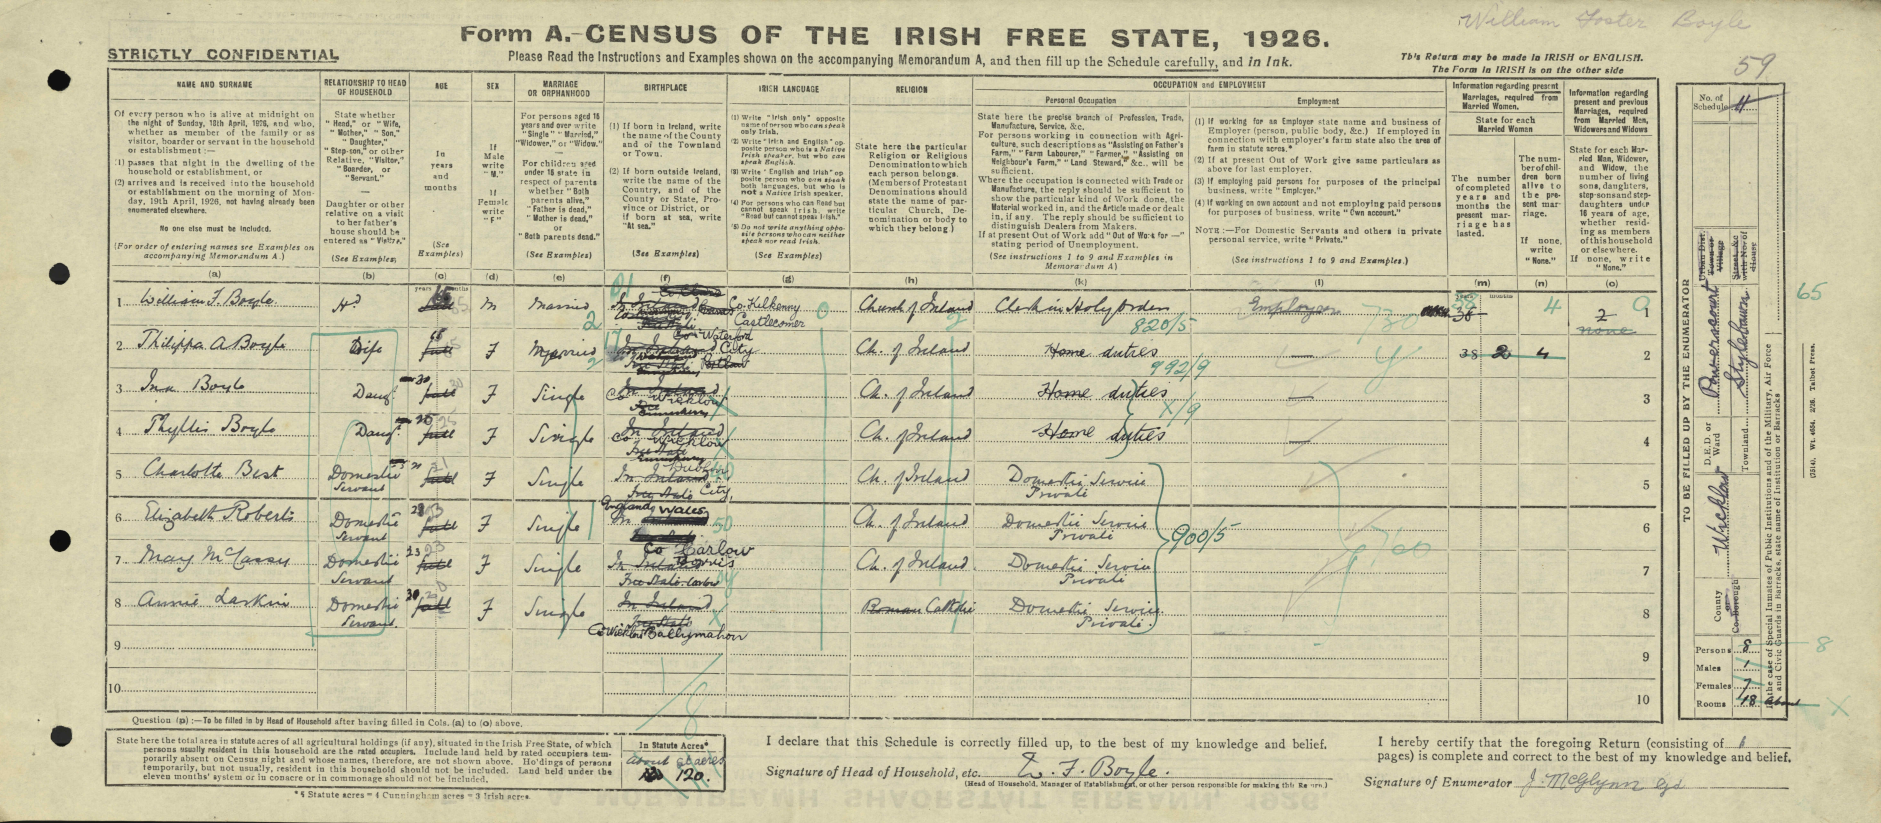 William Foster Boyle
Form A.-CENSUS OF THE IRISH FREE STATE, 1926.
STRICTLY CONFIDENTIAL
Please Read the Instructions and Examples shown on the accompanying Memorandum A, and then fill up the Schedule carefully, and in Ink.
This Return may be made in IRISH or ENGLISH.
The Form in IRISH is on the other side
59
NAME AND SURNAME
Of every person who is alive at midnight on the night of Sunday, 18th April, 1926, and who, whether as member of the family or as visitor, boarder or servant in the household or establishment:—
(1) passes that night in the dwelling of the household or establishment, or
(2) arrives and is received into the household or establishment on the morning of Monday, 19th April, 1926, not having already been enumerated elsewhere.
No one else must be included.
(For order of entering names see Examples on accompanying Memorandum A.)
(a)
RELATIONSHIP TO HEAD OF HOUSEHOLD
State whether "Head," or "Wife, "Mother," "Son," "Daughter," "Step-son," or other Relative, "Visitor," "Boarder, or "Servant."
Daughter or other relative on a visit to her father's house should be entered as "Visitor."
(See Examples)
(b)
AGE
In years and months
(See Examples)
(c)
SEX
If Male write "M."
If Female write "F."
(d)
MARRIAGE OR ORPHANHOOD
For persons aged 16 years and over write "Single" "Married," "Widower," or "Widow."
For children aged under 16 state in respect of parents whether "Both parents alive," "Father is dead," "Mother is dead," or "Both parents dead."
(See Examples)
(e)
BIRTHPLACE
(1) If born in Ireland, write the name of the County and of the Townland or Town.
(2) If born outside Ireland, write the name of the Country, and of the County or State, Province or District, or if born at sea, write "At sea."
(See Examples)
(f)
IRISH LANGUAGE
(1) Write "Irish only" opposite name of person who can speak only Irish.
(2) Write "Irish and English" opposite person who is a Native Irish speaker, but who can speak English.
(3) Write "English and Irish" opposite person who can speak both languages, but who is not a Native Irish speaker.
(4) For persons who can Read but cannot speak Irish, write "Read but cannot speak Irish."
(5) Do not write anything opposite persons who can neither speak nor read Irish.
(g)
RELIGION
State here the particular Religion or Religious Denomination to which each person belongs.
(Members of Protestant Denominations should state the name of particular Church, Denomination or body to which they belong.)
(h)
OCCUPATION AND EMPLOYMENT
Personal Occupation
State here the precise branch of Profession, Trade, Manufacture, Service, &c.
For persons working in connection with Agriculture, such descriptions as "Assisting on Father's Farm," "Farm Labourer," "Farmer," "Assisting on Neighbour's Farm," "Land Steward," &c., will be sufficient.
Where the occupation is connected with Trade or Manufacture, the reply should be sufficient to show the particular Kind of Work done, the Material worked in, and the Article made or dealt in, if any. The reply should be sufficient to distinguish Dealers from Makers.
If at present Out of Work add "Out of Work for —" stating period of Unemployment.
(See instructions 1 to 9 and Examples in Memorandum A)
(k)
Employment
(1) If working for an Employer state name and business of Employer (person, public body, &c.) If employed in connection with employer's farm state also the area of farm in statute acres.*
(2) If at present Out of Work give same particulars as above for last employer.
(3) If employing paid persons for purposes of the principal business, write "Employer."
(4) If working on own account and not employing paid persons for purposes of business, write "Own account."
NOTE:—For Domestic Servants and others in private personal service, write "Private."
(See instructions 1 to 9 and Examples.)
(l)
Information regarding present Marriages, required from Married Women.
State for each Married Woman
The number of completed years and months the present marriage has lasted.
(m)
The number of children born alive to the present marriage.
If none, write "None."
(n)
Information regarding present and previous Marriages, required from Married Men, Widowers and Widows
State for each Married Man, Widower, and Widow, the number of living sons, daughters, stepsons and stepdaughters under 16 years of age, whether residing as members of this household or elsewhere.
If none, write "None."
(o)
years months
1 William F. Boyle Hd 65 M Married Co. Kilkenny Castlecomer Church of Ireland Clerk in Holy Orders 820/5 Employer 38 4 2 none 1
2 Philippa A Boyle Wife F Married Co. Waterford City Ch. of Ireland Home duties 992/9 — 38 2 4 2
3 Ina Boyle Daug. 30 F Single Co Wicklow Ch. of Ireland Home duties X/9 — 3
4 Phyllis Boyle Daug. 25 F Single Co. Wicklow Ch. of Ireland Home duties — 4
5 Charlotte Best Domestic Servant F Single Dublin City Ch. of Ireland Domestic Service Private 5
6 Elizabeth Roberts Domestic Servant F Single England, Wales Ch. of Ireland Domestic Service Private 900/5 6
7 Mary McCassey Domestic Servant 23 F Single Co Carlow Borris Ch. of Ireland Domestic Service Private 7
8 Annie Larkin Domestic Servant 30 F Single In Ireland Free State Co Wicklow Ballymahon Roman Catholic Domestic Service Private. 8
9 9
10 10
Question (p) :—To be filled in by Head of Household after having filled in Cols. (a) to (o) above.
State here the total area in statute acres of all agricultural holdings (if any), situated in the Irish Free State, of which persons usually resident in this household are the rated occupiers. Include land held by rated occupiers temporarily absent on Census night and whose names, therefore, are not shown above. Holdings of persons temporarily, but not usually, resident in this household should not be included. Land held under the eleven months' system or in conacre or in commonage should not be included.
In Statute Acres*
About
120.
* 5 Statute acres = 4 Cunningham acres = 3 Irish acres
I declare that this Schedule is correctly filled up, to the best of my knowledge and belief.
Signature of Head of Household, etc. W. F. Boyle.
(Head of Household, Manager of Establishment, or other person responsible for making this Return.)
I hereby certify that the foregoing Return (consisting of 1 pages) is complete and correct to the best of my knowledge and belief.
Signature of Enumerator J. McGlynn Gd
TO BE FILLED UP BY THE ENUMERATOR
No. of Schedule
Urban Dist. Town or Village
Street, &c with No. of House
D.E.D. or Ward Powerscourt
Townland
County or Co. Borough Wicklow
Persons 8
Males 1
Females 7
Rooms 18 about
In the case of Special Inmates of Public Institutions and of the Military, Air Force and Civic Guards in Barracks, state name of Institution or Barracks
65
8
X
(G514). Wt. 4654. 2/26. Talbot Press.